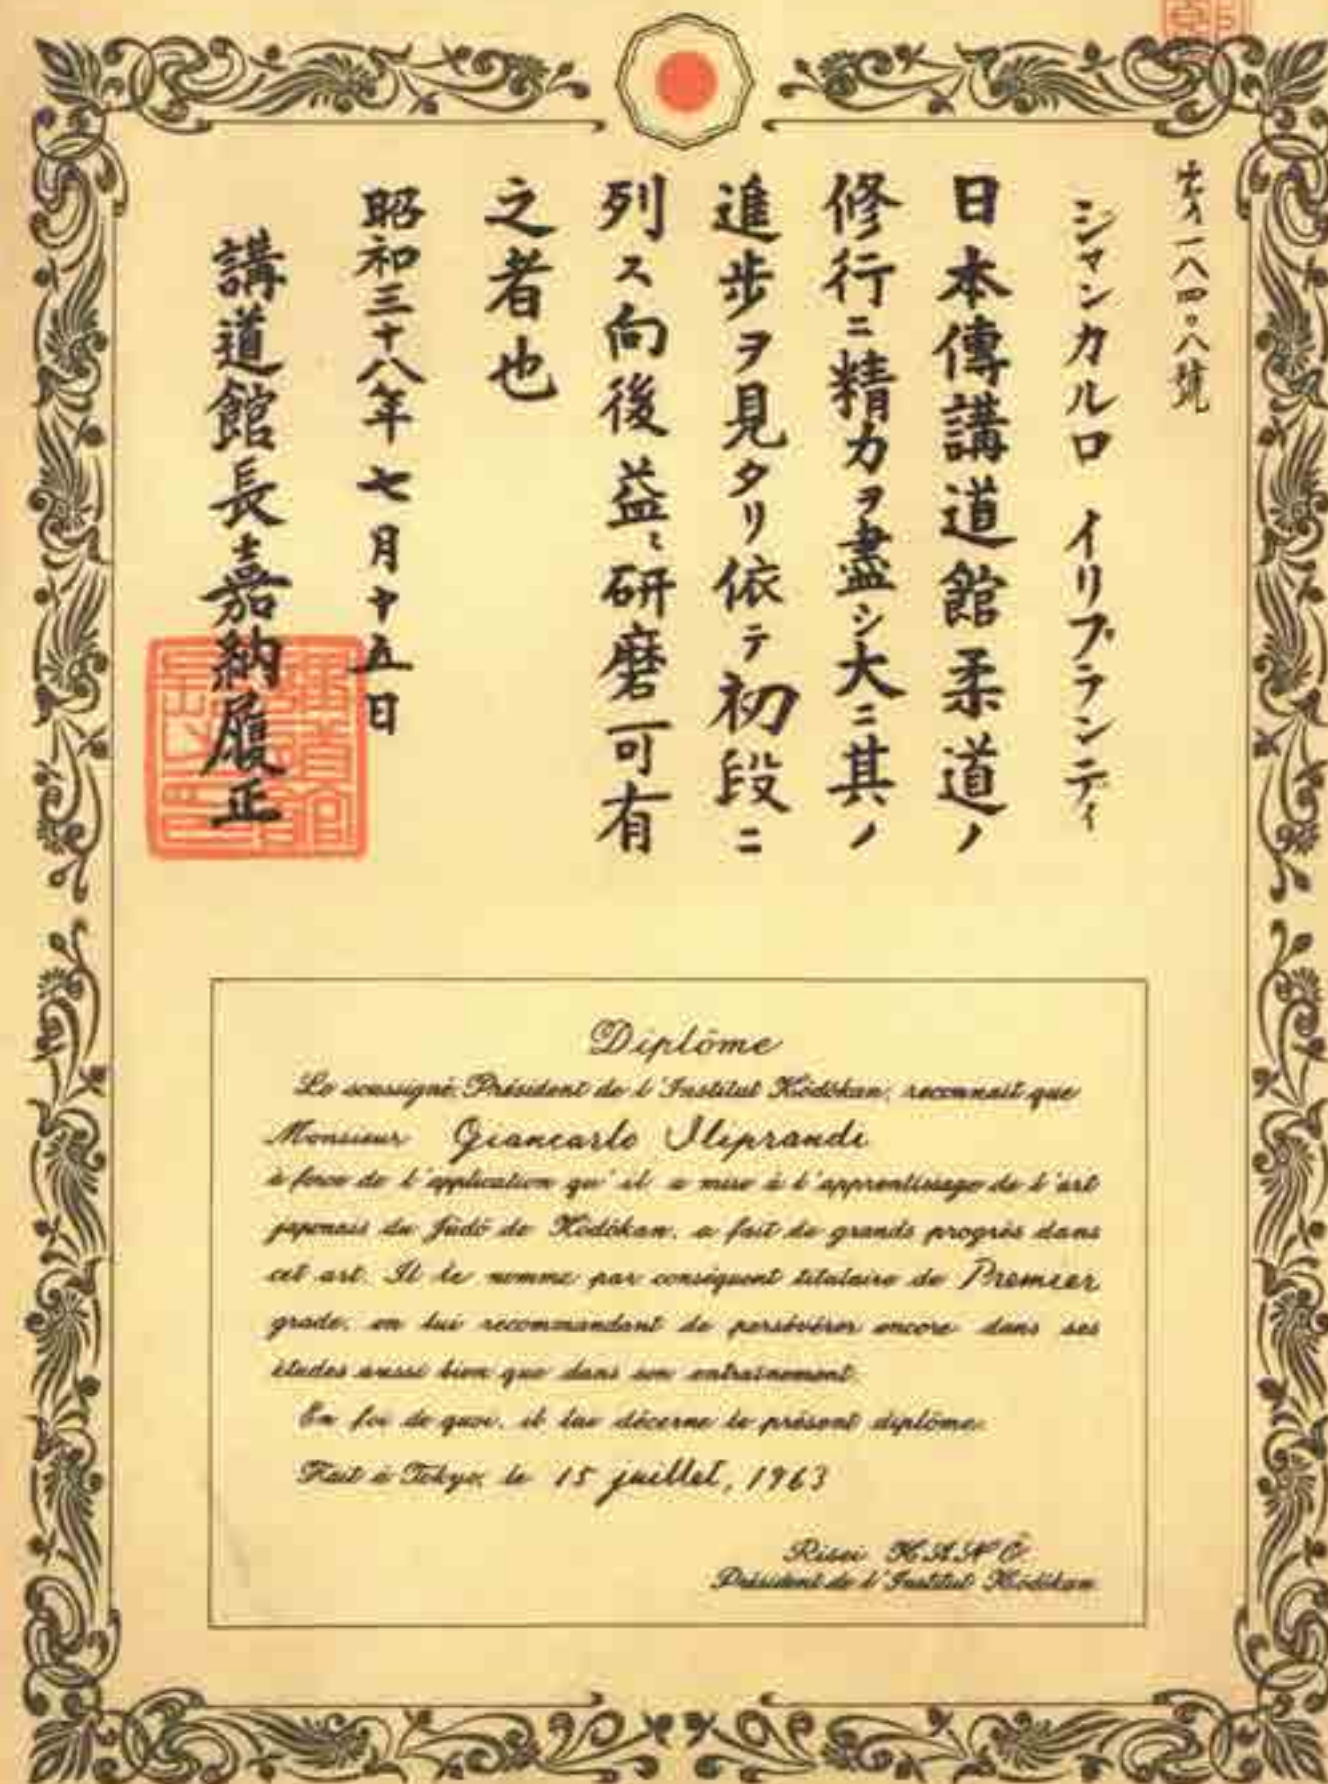 一八四〇八號
ジャンカルロ イリプランディ
日本傳講道館柔道ノ
修行ニ精力ヲ盡シ大ニ其ノ
進歩ヲ見タリ依テ初段ニ
列ス向後益〻研磨可有
之者也
昭和三十八年七月十五日
講道館長嘉納履正
Diplôme
Le soussigné, Président de l'Institut Kôdôkan, reconnaît que
Monsieur Giancarlo Iliprandi
à force de l'application qu'il a mise à l'apprentissage de l'art
japonais du Jûdô de Kôdôkan, a fait de grands progrès dans
cet art. Il le nomme par conséquent titulaire de Premier
grade, en lui recommandant de persévérer encore dans ses
études aussi bien que dans son entraînement.
En foi de quoi, il lui décerne le présent diplôme.
Fait à Tokyo, le 15 juillet, 1963
Risei KANÔ
Président de l'Institut Kôdôkan